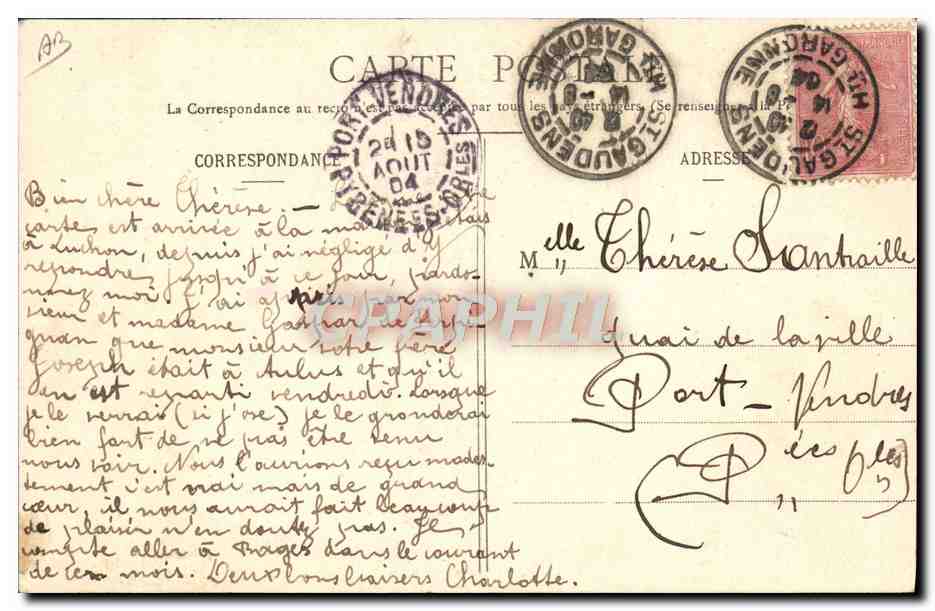 AB
CARTE POSTALE
La Correspondance au recto n'est pas acceptée par tous les pays étrangers. (Se renseigner à la P
CORRESPONDANCE
ADRESSE
PORT-VENDRES
2E 15
AOUT
04
PYRÉNÉES-ORLES
ST GAUDENS
HTE GARONNE
14
8
04
ST GAUDENS
HTE GARONNE
14
8
04
Bien chère Thérèse. —
cartes est arrivée à la j'étais
à Luchon, depuis j'ai négligé d'y
répondre jusqu'à ce jour, pardo-
nnez moi J'ai appris par mon
sieur et madame Gaspar de
que monsieur votre frère
Joseph était à Aulus et qu'il
en est reparti vendredi. Lorsque
je le verrai (si j'ose) je le gronderai
bien fort de ne pas être venu
nous voir. Nous l'aurions reçu modes-
tement c'est vrai mais de grand
cœur, il nous aurait fait beaucoup
de plaisir n'en doutez pas. Je
compte aller à Bages dans le courant
de ce mois. Deux bons baisers Charlotte.
Melle Thérèse Santraille
Quai de la ville
Port-Vendres
(P Les)
CPAPHIL